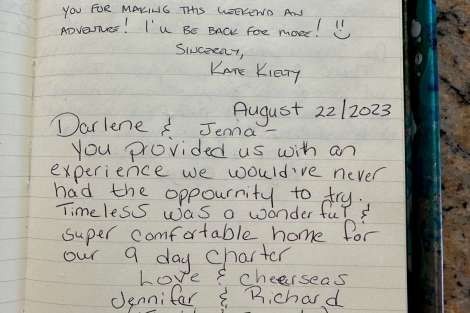 YOU FOR MAKING THIS WEEKEND AN
ADVENTURE! I'LL BE BACK FOR MORE!
SINCERELY,
KATE KIELTY
August 22/2023
Darlene & Jenna-
You provided us with an
experience we would've never
had the oppournity to try.
Timeless was a wonderful &
super comfortable home for
our 9 day charter
Love & cheerseas
Jennifar & Richard